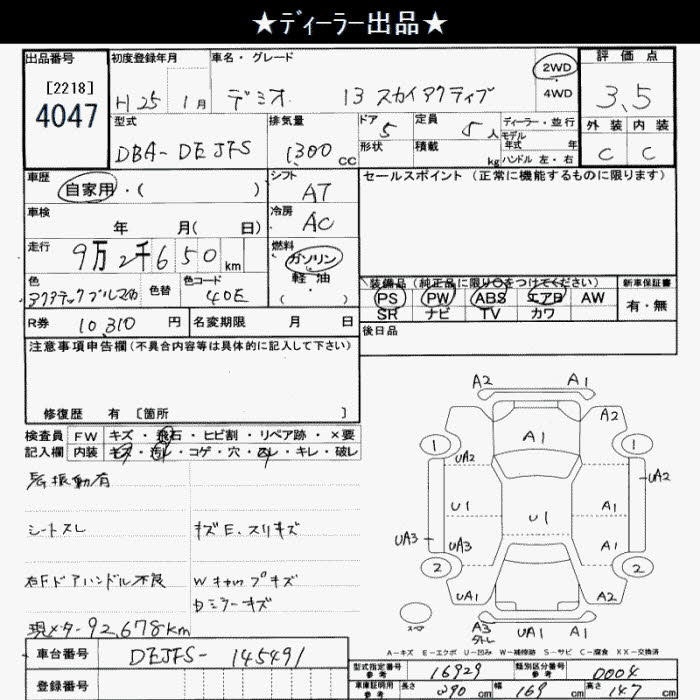 ★ディーラー出品★
出品番号
[2218]
4047
初度登録年月
H25 1月
車名・グレード
デミオ 13 スカイアクティブ
2WD
4WD
評価点
3.5
外装 内装
C C
型式
DBA-DEJFS
排気量
1300 cc
ドア 5
形状
定員 5人
積載 kg
ディーラー・並行
モデル
年式 年
ハンドル 左・右
車歴
自家用・( )
シフト
AT
セールスポイント (正常に機能するものに限ります)
車検
年 月( 日)
冷房
AC
走行
9万2千650 km
燃料
ガソリン
軽油
( )
色
アクアティックブルーマイカ
色替
色コード
40E
装備品(純正品に限り○をつけてください)
PS PW ABS エアB AW
SR ナビ TV カワ
新車保証書
有・無
R券 10,310 円
名変期限 月 日
後日品
注意事項申告欄(不具合内容等は具体的に記入して下さい)
修復歴 有 [箇所 ]
検査員
記入欄
FW キズ・飛石・ヒビ割・リペア跡・×要
内装 キズ・汚レ・コゲ・穴・スレ・キレ・破レ
振動有
シートスレ
キズE、スリキズ
右Fドアハンドル不良
Wキャップキズ
Dミラーキズ
現メーター92,678km
車台番号 DEJFS-145491
登録番号
A2 A1
A2
1 A1 1
UA2
UA2
U1 U1 A1
UA3
UA3 A1
2 2
UA1 A1
スペア
A3 UA1 A1
A-キズ E-エクボ U-凹み W-補修跡 S-サビ C-腐食 XX-交換済
型式指定番号
参考
16929
類別区分番号
参考
0004
車庫証明用
参考
長さ 390 cm
幅 169 cm
高さ 147 cm